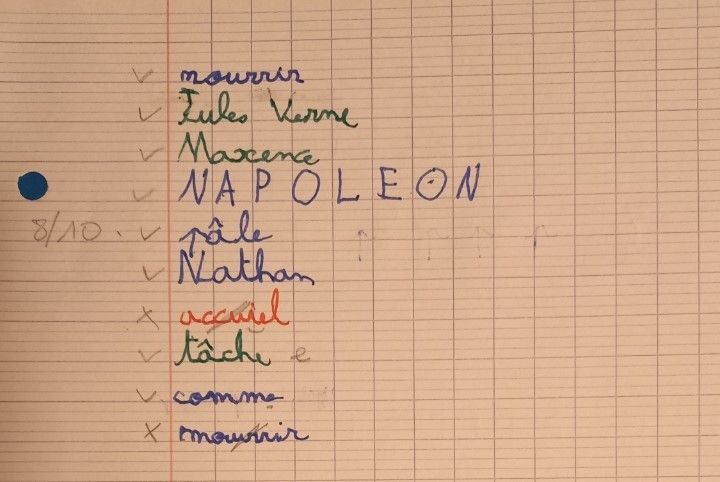 nourrir
Jules Verne
Maxence
NAPOLEON
8/10 . pâle
Nathan
accuiel
tâche e
comme
mourrir